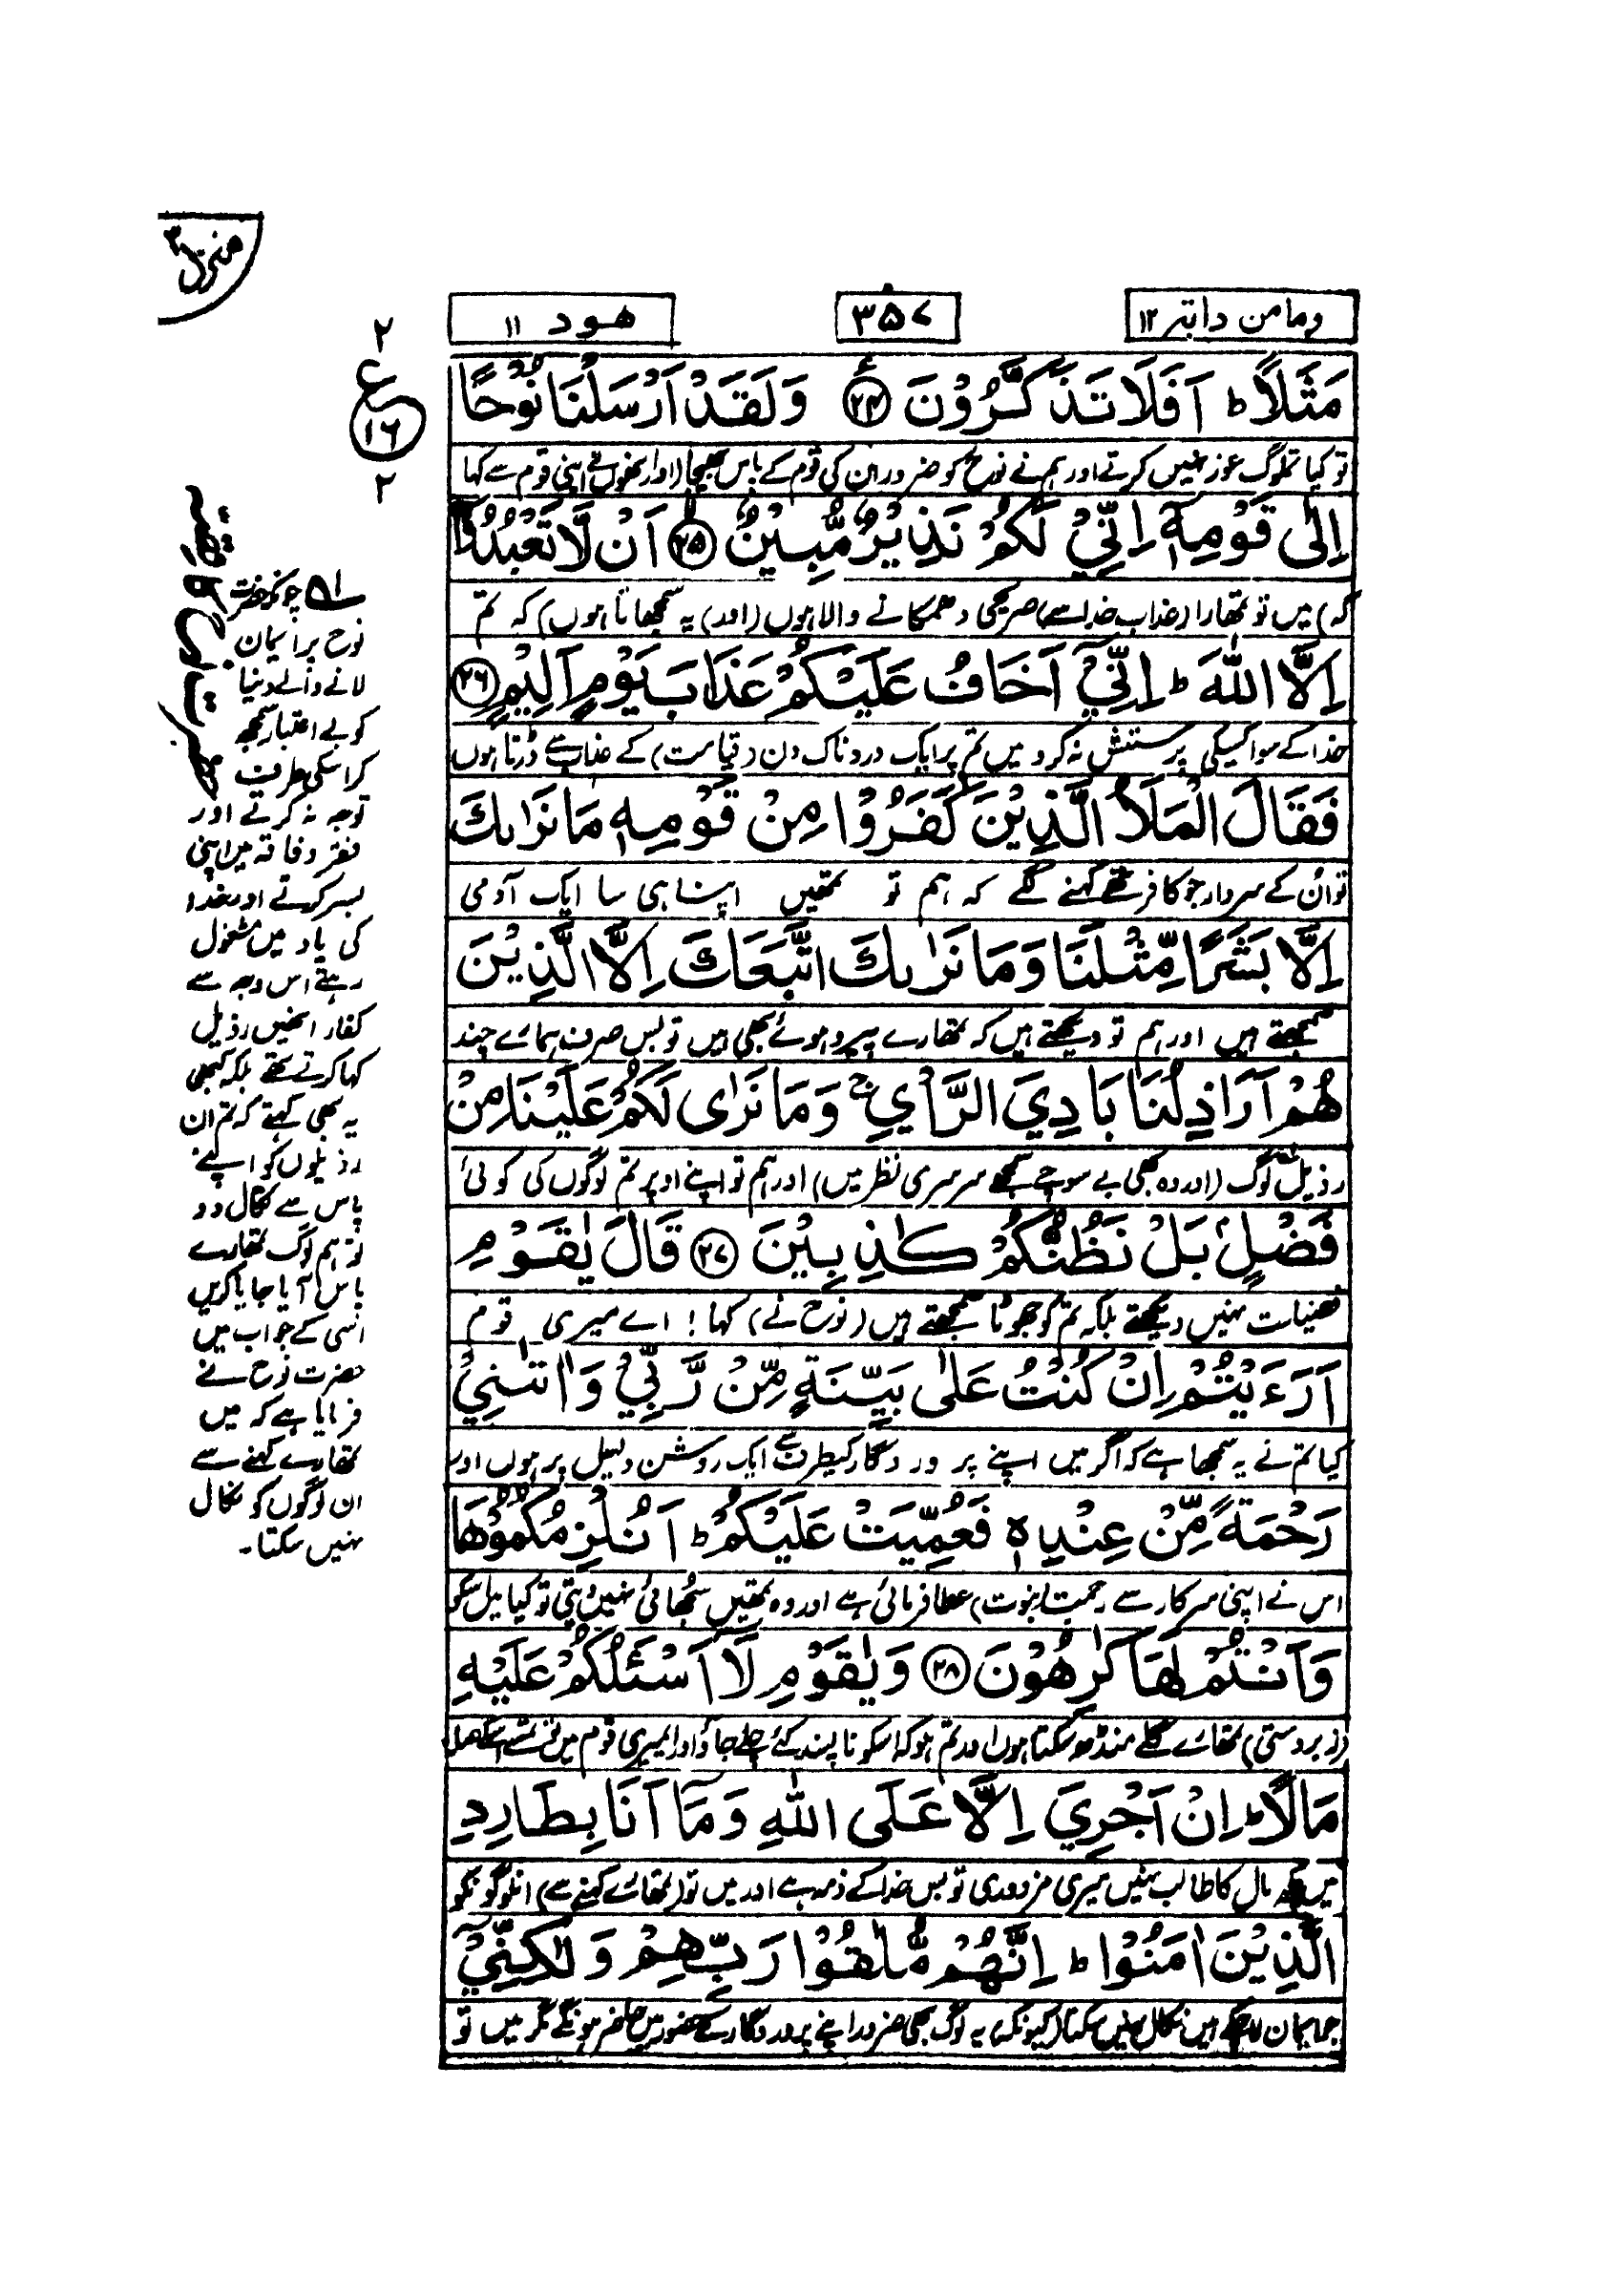 منزل ۳
ومامن دابۃ ۱۲
۳۵۷
ھود ۱۱
مَثَلًا ؕ اَفَلَا تَذَكَّرُوْنَ ﴿۲۴﴾ وَلَقَدْ اَرْسَلْنَا نُوْحًا
تو کیا تم لوگ غور نہیں کرتے اور ہم نے نوح کو ضرور ان کی قوم کے پاس بھیجا (اور انھوں نے اپنی قوم سے کہا
اِلٰى قَوْمِهٖۤ اِنِّيْ لَكُمْ نَذِيْرٌ مُّبِيْنٌ ﴿۲۵﴾ اَنْ لَّا تَعْبُدُوْۤا
کہ) میں تو تمھارا (عذاب خدا سے) صریحی دھمکانے والا ہوں (اور) یہ سمجھاتا ہوں) کہ تم
اِلَّا اللّٰهَ ؕ اِنِّيْۤ اَخَافُ عَلَيْكُمْ عَذَابَ يَوْمٍ اَلِيْمٍ ﴿۲۶﴾
خدا کے سوا کسیکی پرستش نہ کرو میں تم پر ایک دردناک دن (قیامت) کے عذاب سے ڈرتا ہوں
فَقَالَ الْمَلَاُ الَّذِيْنَ كَفَرُوْا مِنْ قَوْمِهٖ مَا نَرٰىكَ
تو ان کے سردار جو کافر تھے کہنے لگے کہ ہم تو تمھیں اپنا ہی سا ایک آدمی
اِلَّا بَشَرًا مِّثْلَنَا وَمَا نَرٰىكَ اتَّبَعَكَ اِلَّا الَّذِيْنَ
سمجھتے ہیں اور ہم تو دیکھتے ہیں کہ تمھارے پیرو ہوئے بھی ہیں تو بس صرف ہمارے چند
هُمْ اَرَاذِلُنَا بَادِيَ الرَّاْيِ ۚ وَمَا نَرٰى لَكُمْ عَلَيْنَا مِنْ
رذیل لوگ (اور وہ بھی بے سوچے سمجھے سرسری نظر میں) اور ہم تو اپنے اوپر تم لوگوں کی کوئی
فَضْلٍۭ بَلْ نَظُنُّكُمْ كٰذِبِيْنَ ﴿۲۷﴾ قَالَ يٰقَوْمِ
فضیلت نہیں دیکھتے بلکہ تم کو جھوٹا سمجھتے ہیں (نوح نے) کہا! اے میری قوم
اَرَءَيْتُمْ اِنْ كُنْتُ عَلٰى بَيِّنَةٍ مِّنْ رَّبِّيْ وَاٰتٰىنِيْ
کیا تم نے یہ سمجھا ہے کہ اگر میں اپنے پروردگار کیطرف سے ایک روشن دلیل پر ہوں اور
رَحْمَةً مِّنْ عِنْدِهٖ فَعُمِّيَتْ عَلَيْكُمْ ؕ اَنُلْزِمُكُمُوْهَا
اس نے اپنی سرکار سے رحمت (نبوت) عطا فرمائی ہے اور وہ تمھیں سجھائی نہیں دیتی تو کیا میں اسکو
وَاَنْتُمْ لَهَا كٰرِهُوْنَ ﴿۲۸﴾ وَيٰقَوْمِ لَاۤ اَسْـَٔلُكُمْ عَلَيْهِ
(زبردستی) تمھارے گلے منڈھ سکتا ہوں اور تم ہو کہ اسکو ناپسند کئے چلے جاؤ اور اے میری قوم میں تو تم سے اسکے صلہ
مَالًا ؕ اِنْ اَجْرِيَ اِلَّا عَلَى اللّٰهِ وَمَاۤ اَنَا بِطَارِدِ
میں کچھ مال کا طالب نہیں میری مزدوری تو بس خدا کے ذمہ ہے اور میں تو (تمھارے کہنے سے) ان لوگوں کو
الَّذِيْنَ اٰمَنُوْا ؕ اِنَّهُمْ مُّلٰقُوْا رَبِّهِمْ وَلٰكِنِّيْۤ
جو ایمان لا چکے ہیں نکال نہیں سکتا (کیونکہ) یہ لوگ بھی ضرور اپنے پروردگار کے حضور میں حاضر ہونگے مگر میں تو
۲
ع
۱۶
۲
۱؎ چونکہ حضرت
نوح پر ایمان
لانے والے دنیا
کو بے اعتبار سمجھ
کر اسکی طرف
توجہ نہ کرتے اور
فقر و فاقہ میں اپنی
بسر کرتے اور خدا
کی یاد میں مشغول
رہتے اس وجہ سے
کفار انھیں رذیل
کہا کرتے تھے بلکہ کبھی
یہ بھی کہتے کہ تم ان
رذیلوں کو اپنے
پاس سے نکال دو
تو ہم لوگ تمھارے
پاس آیا جایا کریں
اسی کے جواب میں
حضرت نوح نے
فرمایا ہے کہ میں
تمھارے کہنے سے
ان لوگوں کو نکال
نہیں سکتا۔